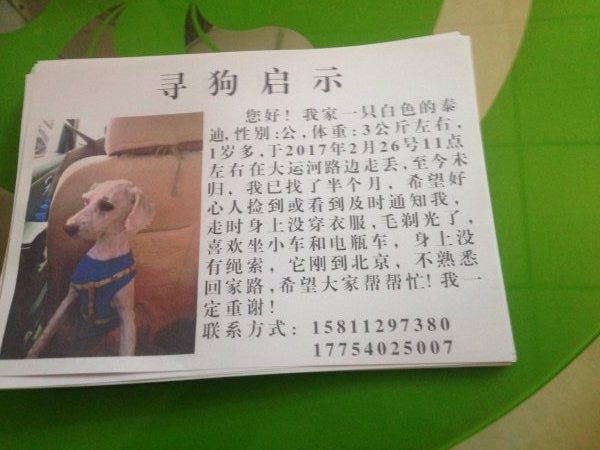 寻狗启示
您好！我家一只白色的泰
迪,性别:公,体重:3公斤左右,
1岁多,于2017年2月26号11点
左右在大运河路边走丢,至今未
归，我已找了半个月，希望好
心人捡到或看到及时通知我,
走时身上没穿衣服,毛剃光了,
喜欢坐小车和电瓶车，身上没
有绳索，它刚到北京，不熟悉
回家路,希望大家帮帮忙!我一
定重谢！
联系方式：15811297380
17754025007